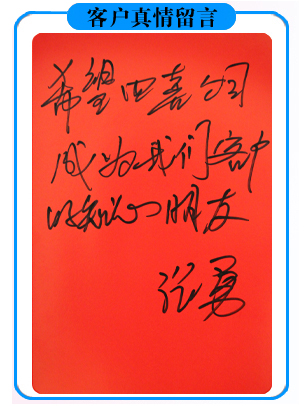 客户真情留言
希望喜公司
成为我们客户
的知心朋友
张勇